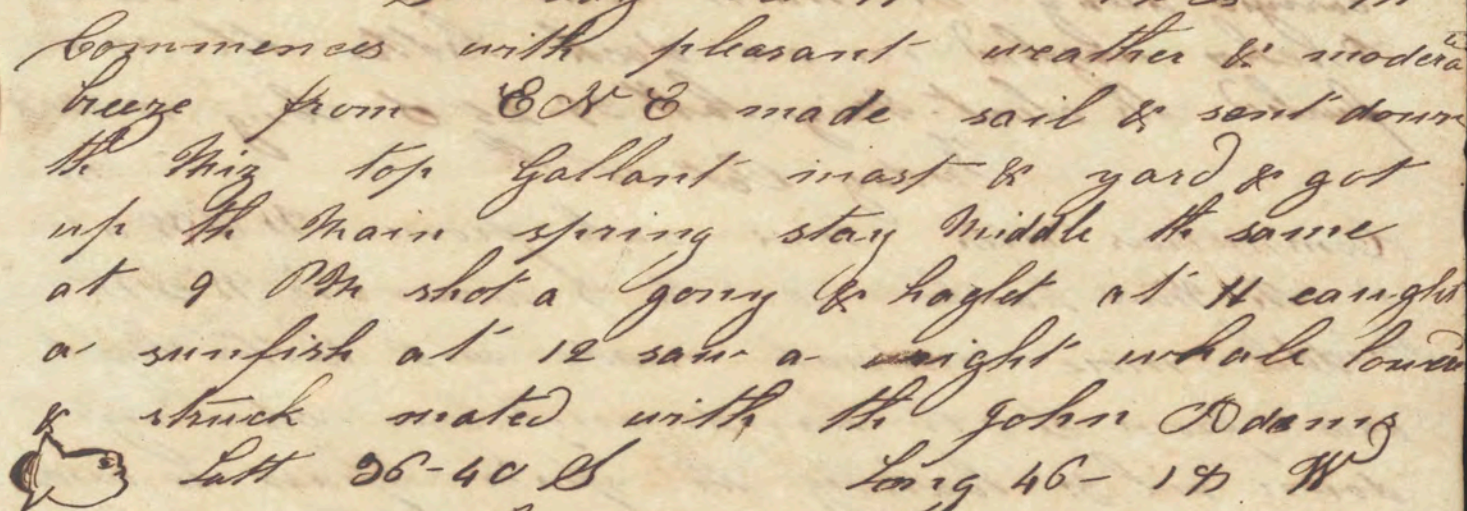 Commences with pleasant weather & modera
breeze from ENE made sail & sent down
th Miz top Gallant mast & yard & got
up th Main spring stay Middle th same
at 9 PM shot a gony & haglet at 11 caught
a sunfish at 12 saw a right whale lowerd
& struck mated with th John Adams
Latt 36-40 S Long 46-18 W